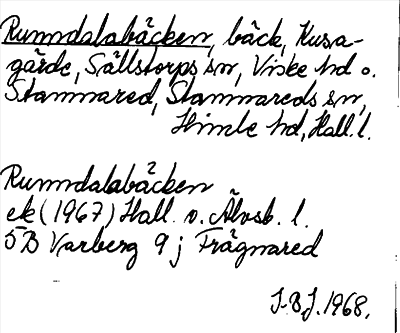 Runndalabäcken, bäck, Kusa-
gärde, Sällstorps sn, Viske hd o.
Stamnared, Stamnareds sn,
Himle hd, Hall. l.
Runndalabäcken
ek (1967) Hall. o. Älvsb. l.
5B Varberg 9 j Frägnared
I.B.J. 1968.